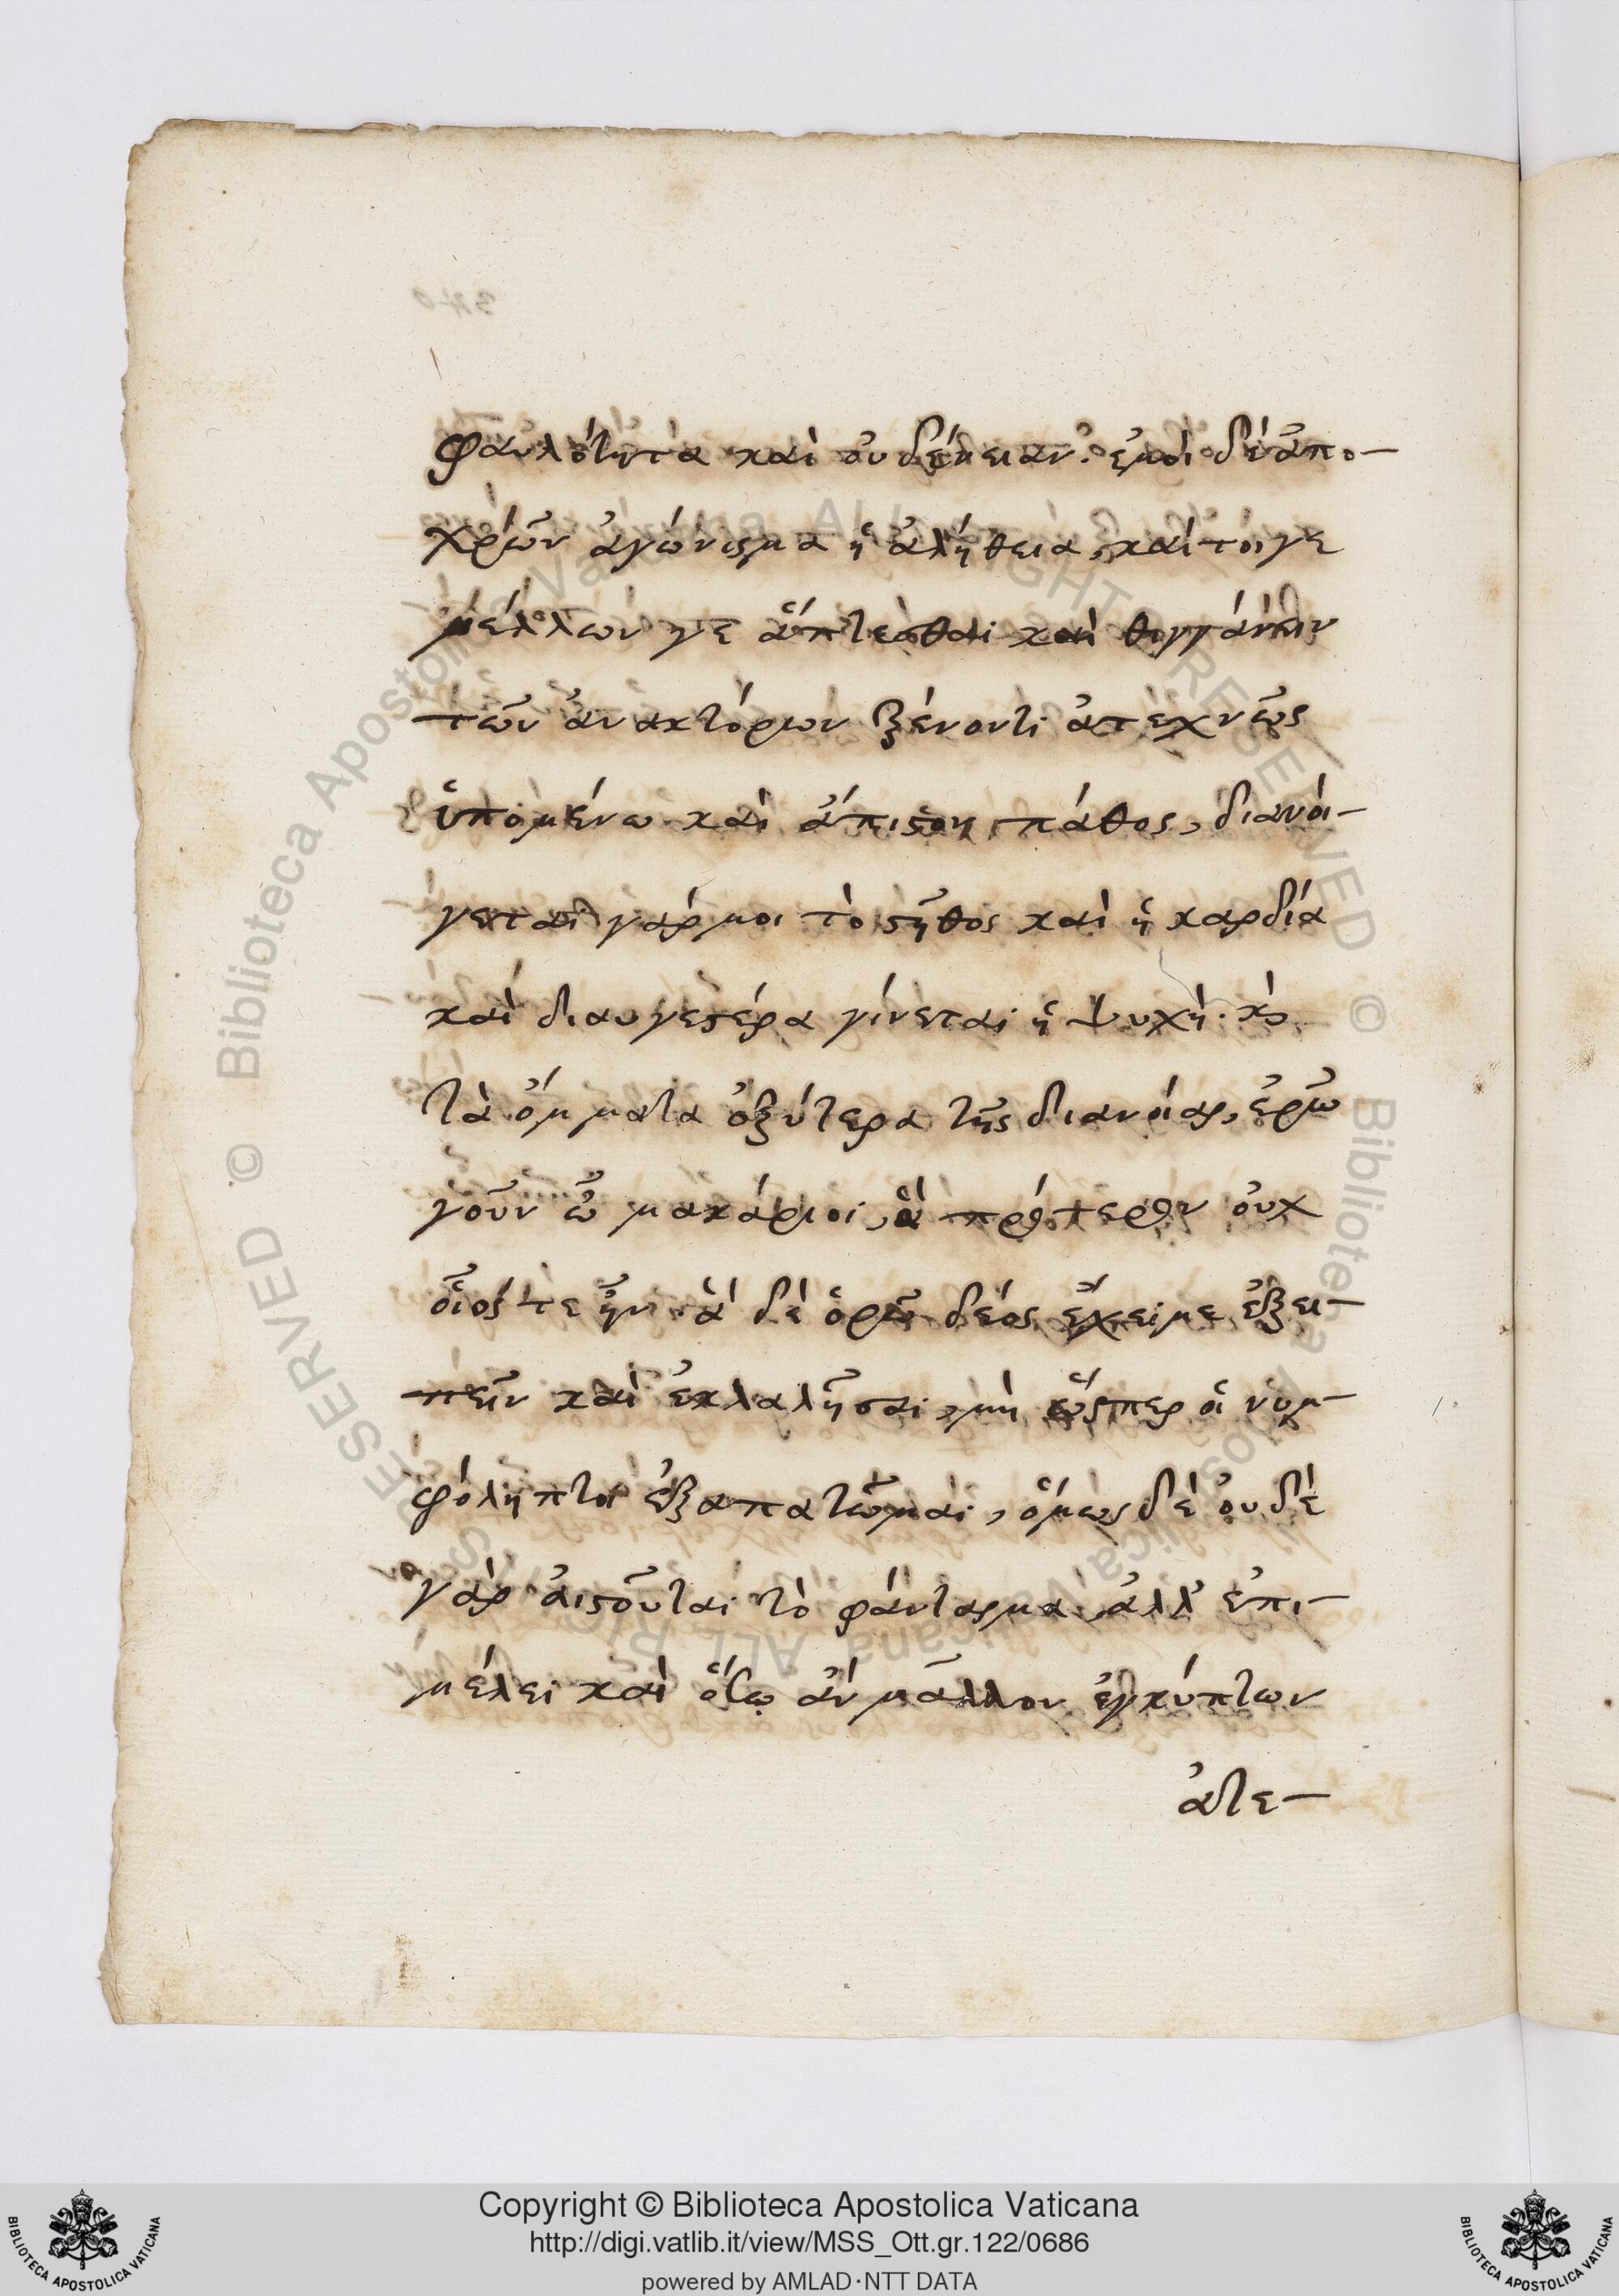 φαυλότητα καὶ οὐδένειαν· ἐμοὶ δὲ ἀπο-
χρῶν ἀγώνισμα ἡ ἀλήθεια, καίτοιγε
μέλλων γε ἅπτεσθαι καὶ θιγγάνειν
τῶν ἀνακτόρων ξένον τι ἀτεχνῶς
ὑπομένω καὶ ἄπιστον πάθος, διανοί-
γεται γάρ μοι τὸ στῆθος καὶ ἡ καρδία
καὶ διαυγεστέρα γίνεται ἡ ψυχὴ· κὸ
τὰ ὄμματα ὀξύτερα τῆς διανοίας, ἐρῶ
γοῦν ὦ μακάριοι, ἃ πρότερον οὐχ
οἷός τε ἦν· ἃ δὲ ὁρῶ δέος ἔχει με ἐξει-
πεῖν καὶ ἐκλαλῆσαι, μὴ ὥσπερ οἱ νυμ-
φόληπτοι ἐξαπατῶμαι, ὅμως δὲ οὐδὲ
γὰρ ἀϊστοῦται τὸ φάντασμα, ἀλλ' ἐπι-
μέλει καὶ ὅτῳ ἂν μᾶλλον ἐγκύπτων
ἀτε-
Copyright © Biblioteca Apostolica Vaticana
http://digi.vatlib.it/view/MSS_Ott.gr.122/0686
powered by AMLAD·NTT DATA
BIBLIOTECA APOSTOLICA VATICANA
BIBLIOTECA APOSTOLICA VATICANA